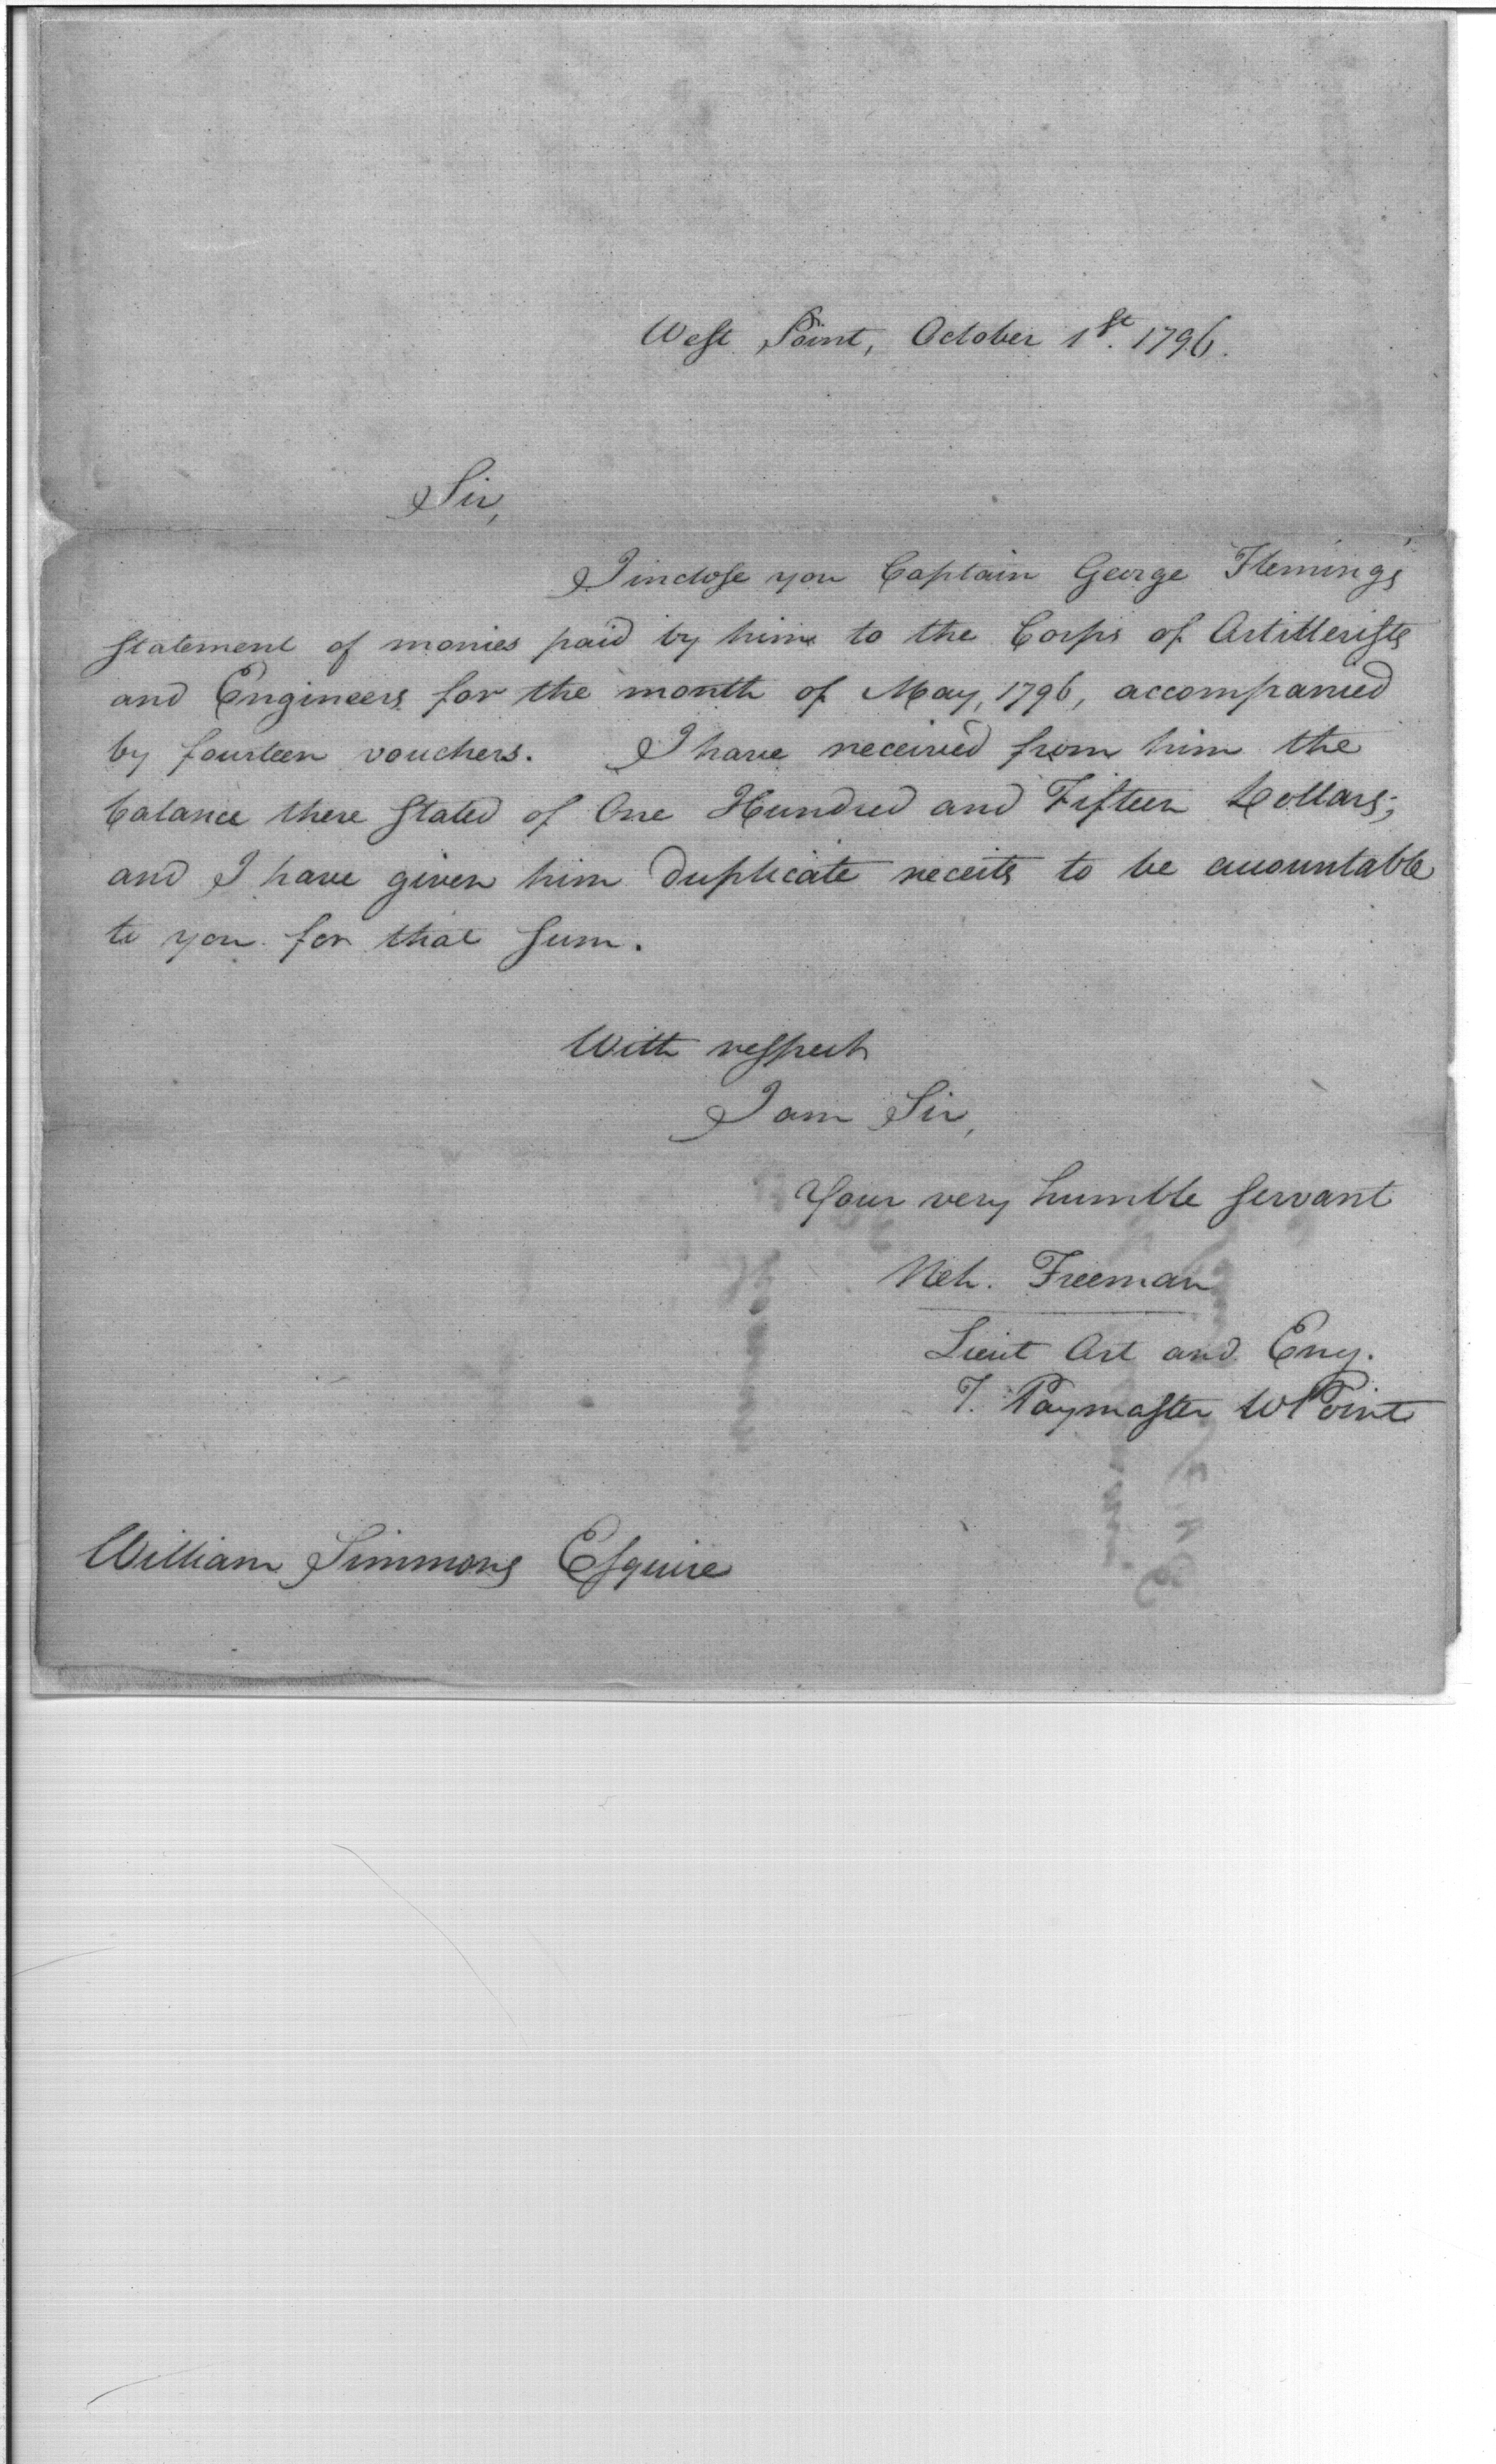 West Point, October 1st. 1796.
Sir,
I inclose you Captain George Fleming's
statement of monies paid by him to the Corps of Artillerists
and Engineers for the month of May, 1796, accompanied
by fourteen vouchers. I have received from him the
balance there stated of One Hundred and Fifteen Dollars;
and I have given him duplicate receits to be accountable
to you for that sum.
With respect
I am Sir,
Your very humble servant
Neh. Freeman
Lieut Art and Eng.
T. Paymaster W Point
William Simmons Esquire